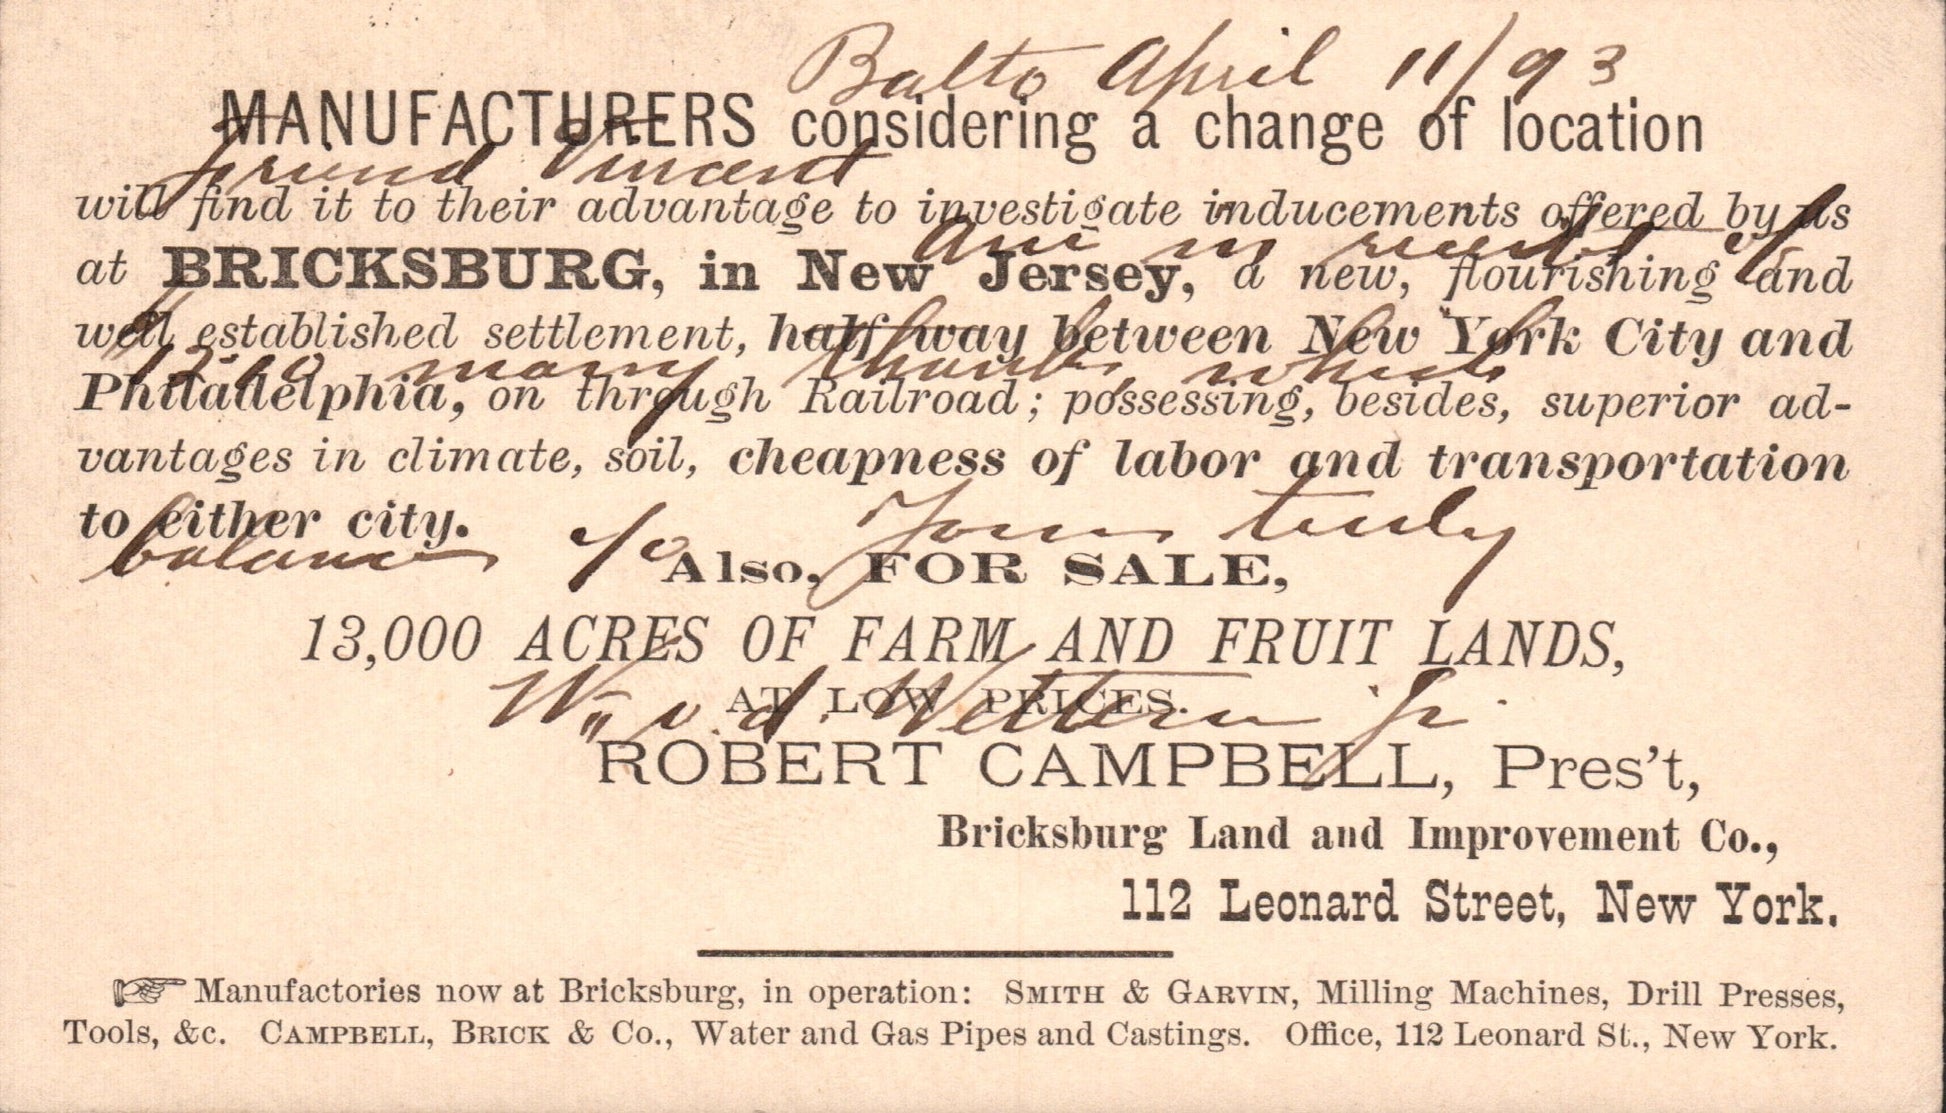 Balto April 11/93
MANUFACTURERS considering a change of location
Friend Vincent
will find it to their advantage to investigate inducements offered by us
am in receipt of
at BRICKSBURG, in New Jersey, a new, flourishing and
well established settlement, half way between New York City and
many thanks, which
Philadelphia, on through Railroad; possessing, besides, superior ad-
vantages in climate, soil, cheapness of labor and transportation
to either city.
balances a/c Yours truly
Also, FOR SALE,
13,000 ACRES OF FARM AND FRUIT LANDS,
AT LOW PRICES.
Wm v. d. Wettern Jr.
ROBERT CAMPBELL, Pres't,
Bricksburg Land and Improvement Co.,
112 Leonard Street, New York.
☞ Manufactories now at Bricksburg, in operation: SMITH & GARVIN, Milling Machines, Drill Presses,
Tools, &c. CAMPBELL, BRICK & Co., Water and Gas Pipes and Castings. Office, 112 Leonard St., New York.